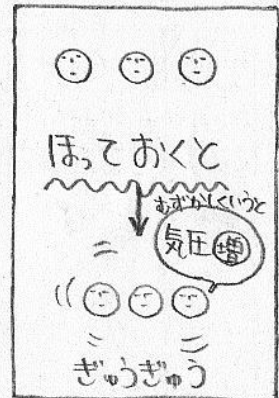 ほっておくと
むずかしくいうと
気圧増
ぎゅうぎゅう